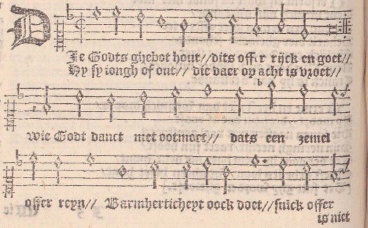 DIe Godts ghebot hout// dits offer rijck en goet//
Hy sy iongh of out// die daer op acht is vroet//
wie Godt danct met ootmoet// dats een zemel
offer reyn// Barmherticheyt oock doet// sulck offer
is niet